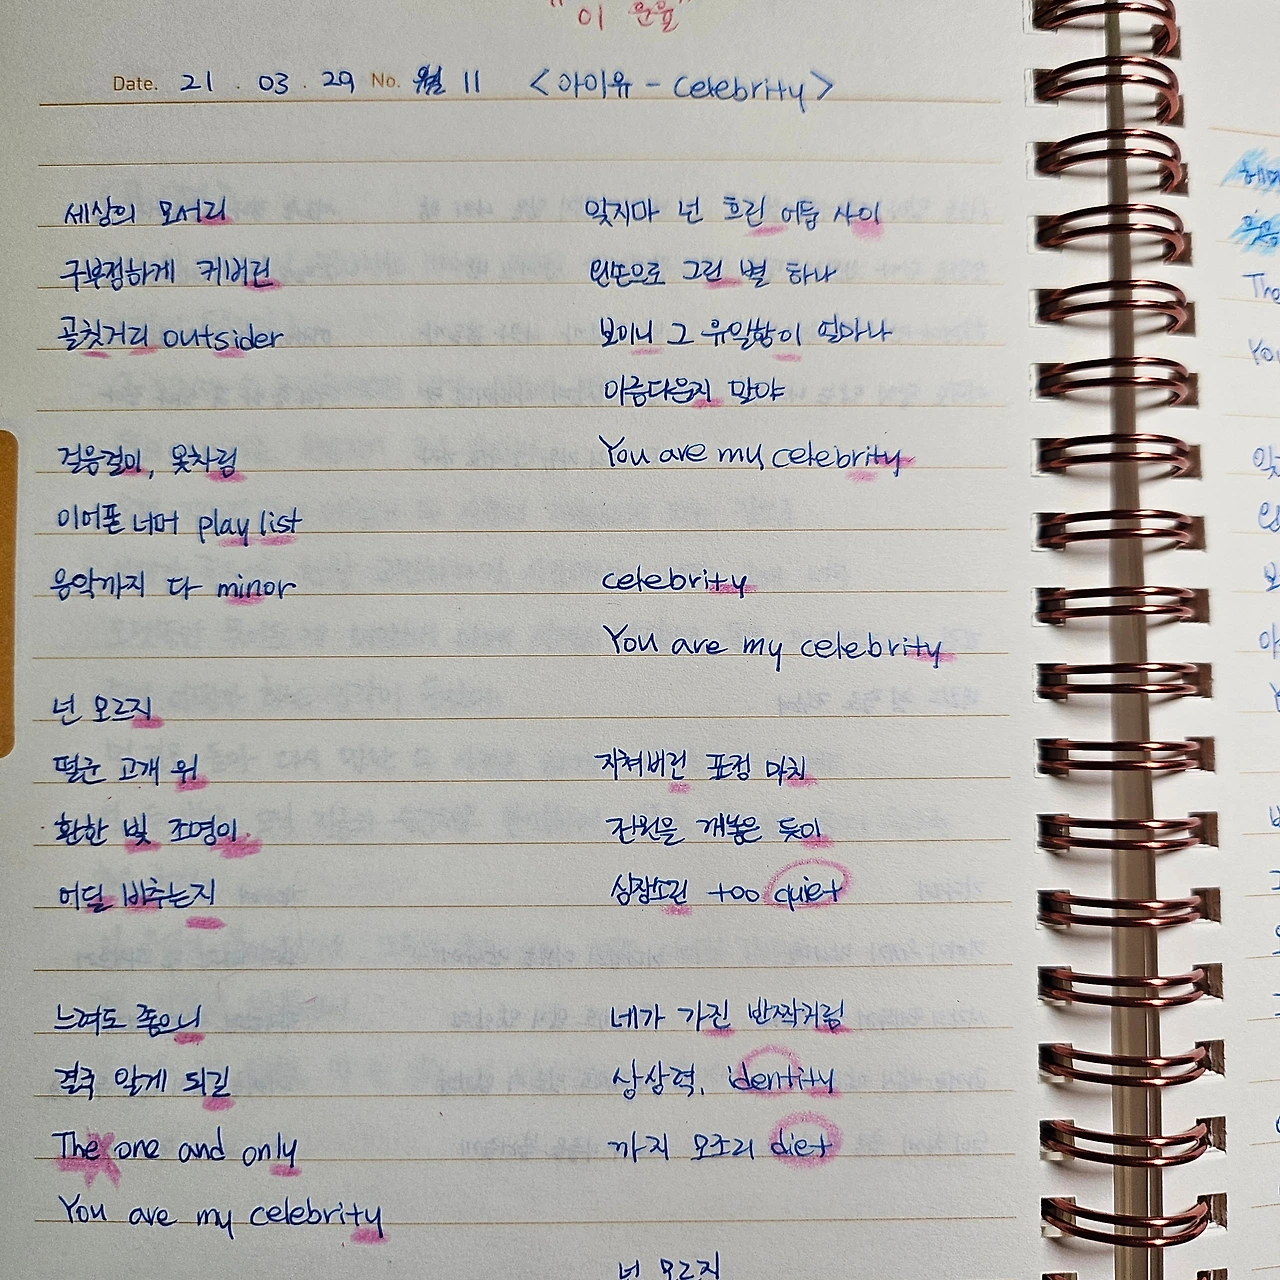 "이 운율"
Date. 21 . 03 . 29 No. 월 11 <아이유 - Celebrity>
세상의 모서리
구부정하게 커버린
골칫거리 outsider
걸음걸이, 옷차림
이어폰 너머 play list
음악까지 다 minor
넌 모르지
떨군 고개 위
환한 빛 조명이
어딜 비추는지
느려도 좋으니
결국 알게 되길
The one and only
You are my celebrity
잊지마 넌 흐린 어둠 사이
왼손으로 그린 별 하나
보이니 그 유일함이 얼마나
아름다운지 말야
You are my celebrity
celebrity
You are my celebrity
지쳐버린 표정 마치
전원을 꺼놓은 듯이
심장소린 too quiet
네가 가진 반짝거림
상상력, identity
까지 모조리 diet
넌 모르지